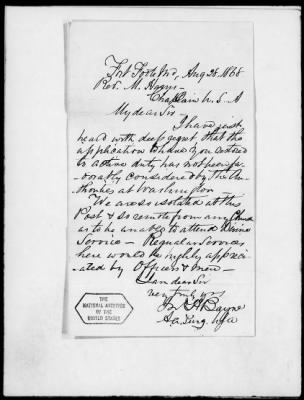 Fort Foote Md, Aug 28, 1868
Rev. M.
Chaplain U.S.A
My dear Sir
I have just
heard with deep regret that the
application to have you ordered
to active duty has not been fa-
vorably considered by the Au-
thorities at Washington
We are so isolated at this
Post & so remote from any Church
as to be unable to attend Divine
Service — Regular Services
here would be highly appreci-
ated by Officers & men —
I am dear Sir
very truly yrs
Bayne
A.A. Surg. USA
THE
NATIONAL ARCHIVES
OF THE
UNITED STATES